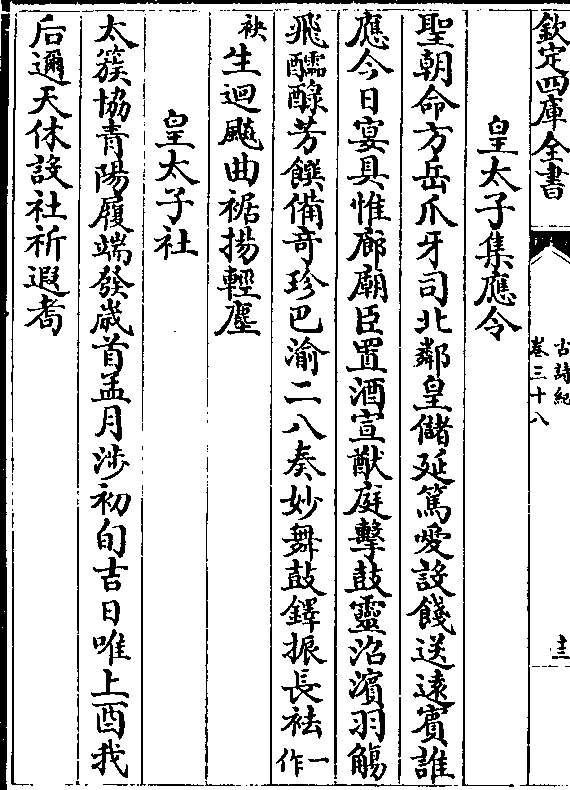 欽定四庫全書
古詩紀
卷三十八
十三
皇太子集應令
聖朝命方岳爪牙司北鄰皇儲延篤愛設餞送遠賓誰
應今日宴具惟廊廟臣置酒宣猷庭擊鼓靈沼濱羽觴
飛醽醁芳饌備奇珍巴渝二八奏妙舞鼓鐸振長袪一作
袂生迴飈曲裾揚輕塵
皇太子社
太簇協青陽履端發歲首孟月涉初旬吉日唯上酉我
后邇天休設社祈遐耈